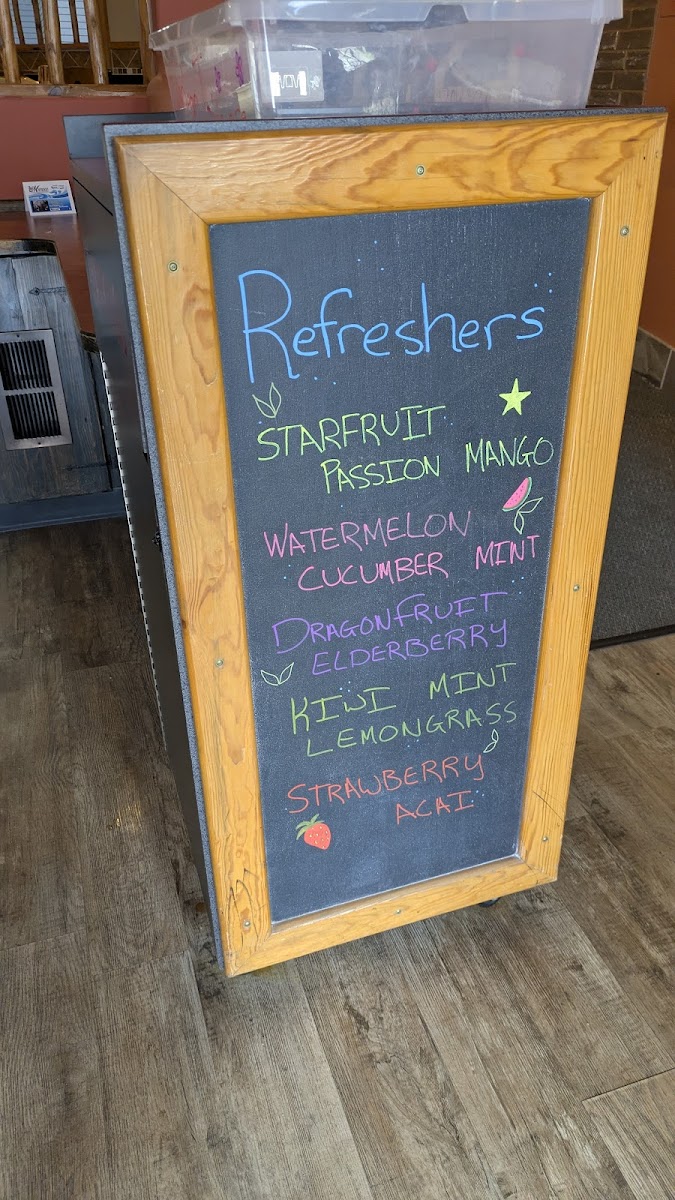 Refreshers
STARFRUIT
PASSION MANGO
WATERMELON
CUCUMBER MINT
DRAGONFRUIT
ELDERBERRY
KIWI MINT
LEMONGRASS
STRAWBERRY
ACAI